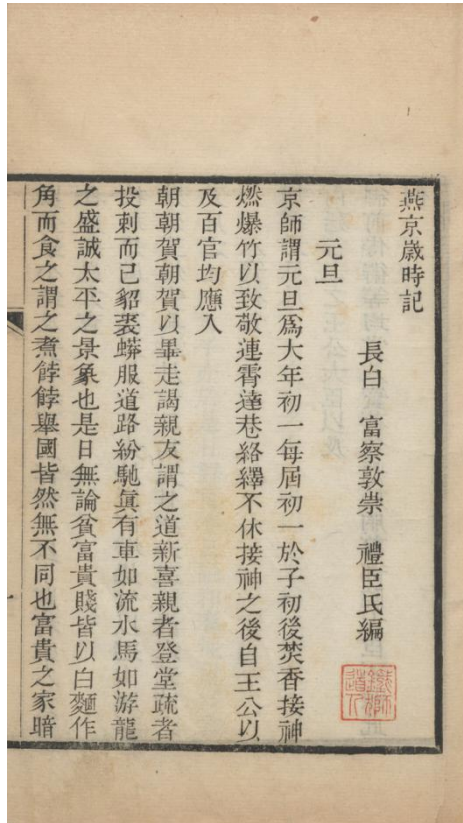 燕京歲時記
長白 富察敦崇 禮臣氏編
元旦
京師謂元旦爲大年初一每屆初一於子初後焚香接神
燃爆竹以致敬連霄達巷絡繹不休接神之後自王公以
及百官均應入
朝朝賀朝賀以畢走謁親友謂之道新喜親者登堂疏者
投刺而已貂裘蟒服道路紛馳眞有車如流水馬如游龍
之盛誠太平之景象也是日無論貧富貴賤皆以白麵作
角而食之謂之煮餑餑舉國皆然無不同也富貴之家暗
鐵獅道人